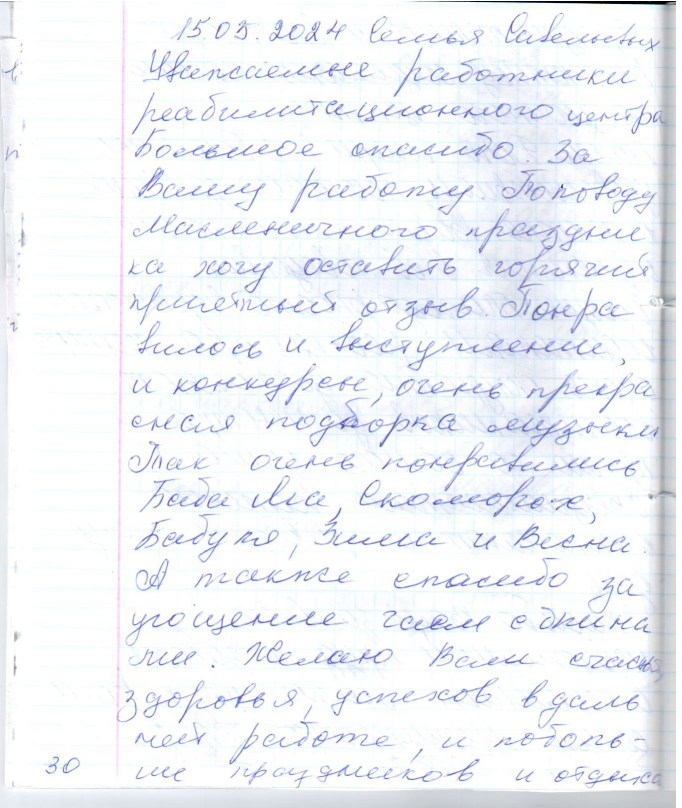 15.03.2024 Семья Савельевых
Уважаемые работники
реабилитационного центра
Большое спасибо. За
Вашу работу. Поповоду
Масленичного праздни
ка хочу оставить горячий
приятный отзыв. Понра
вилось и выступление,
и конкурсы, очень прекра
сная подборка музыки
Так очень понравились
Баба Яга, Скоморох,
Бабуля, Зима и Весна.
А также спасибо за
угощение чаем с блина
ми. Желаю Вам счастья,
здоровья, успехов в даль
ней работе, и поболь-
ше праздников и отдыха
30